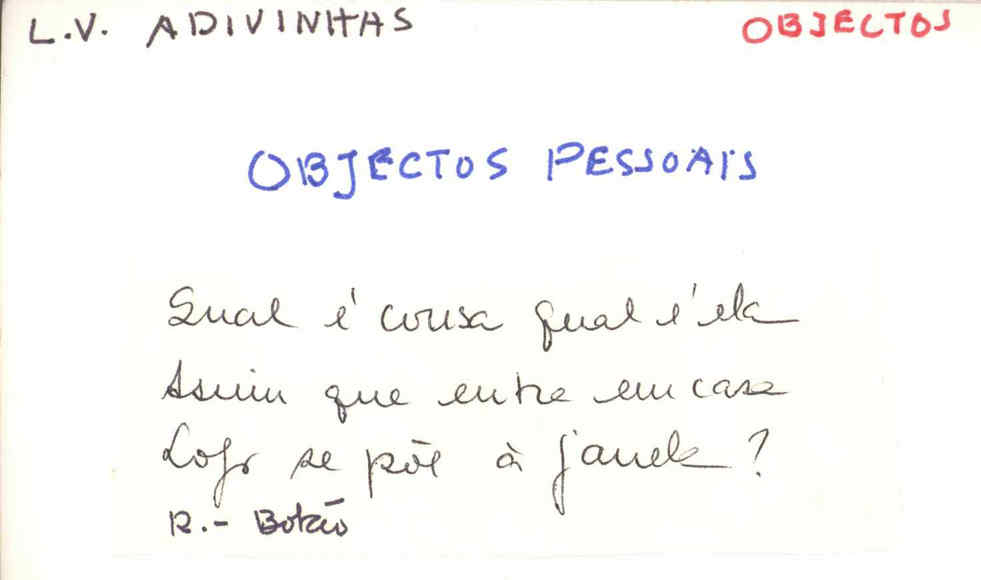 L.V. ADIVINHAS OBJECTOS
OBJECTOS PESSOAIS
Qual é cousa qual é ela
Assim que entra em casa
Logo se põe à janela?
R.- Botão